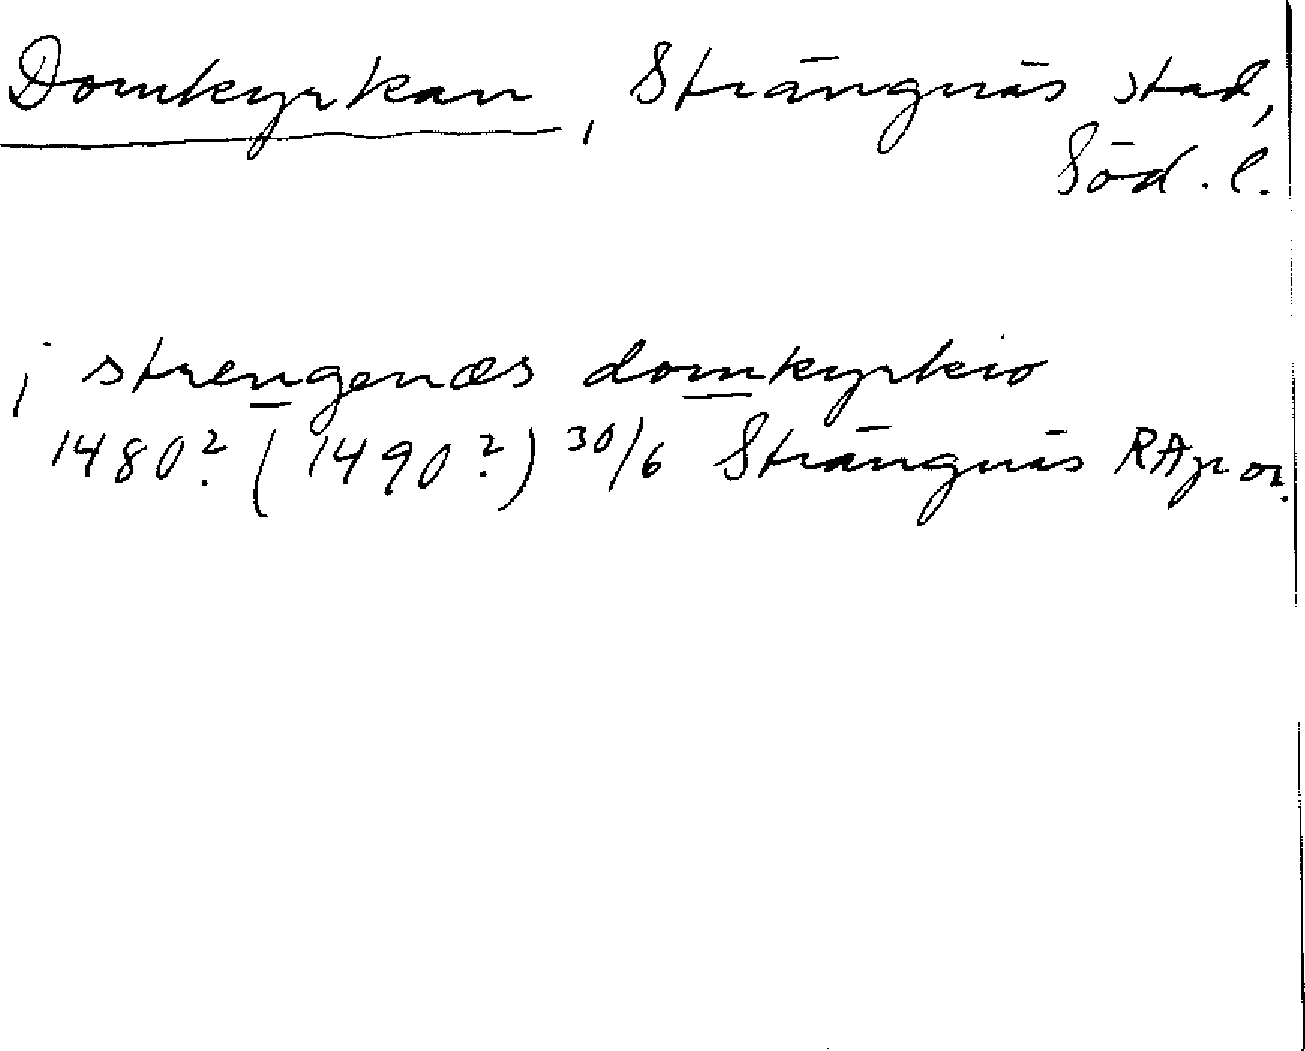 Domkyrkan, Strängnäs stad,
Söd. l.
j strengenæs domkyrkio
1480? (1490?) 30/6 Strängnäs RAp or.